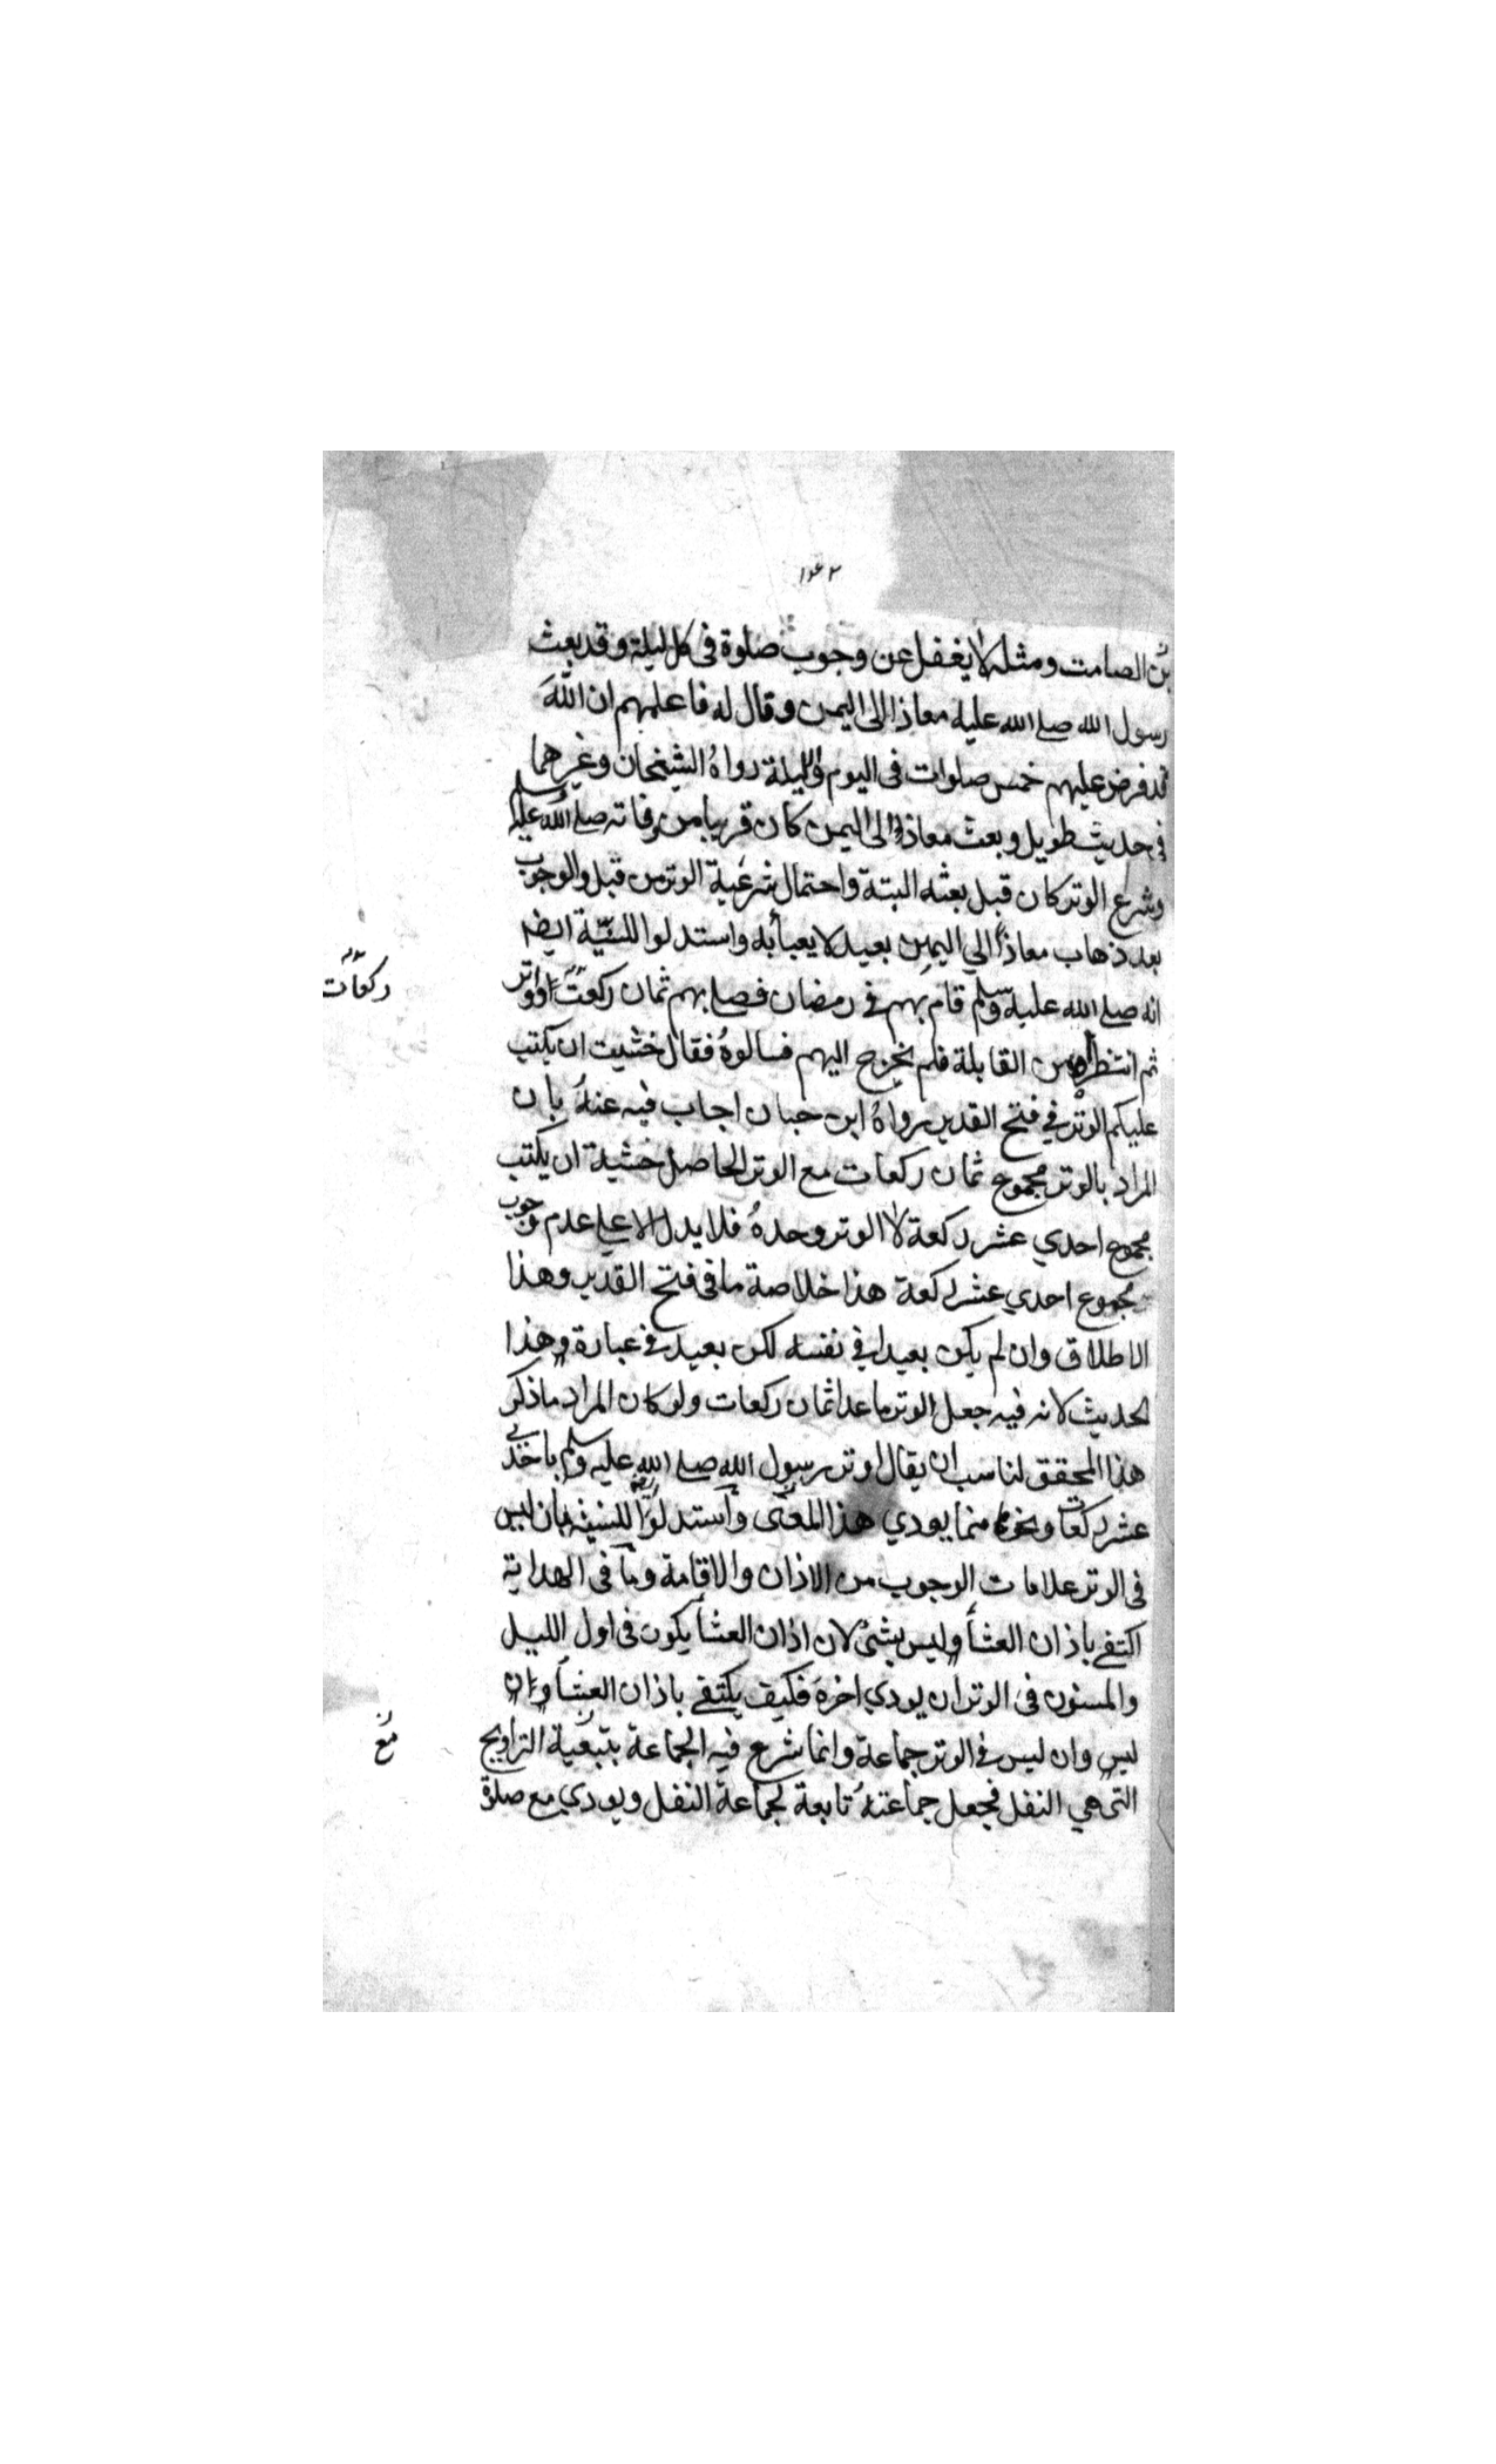 بن الصامت ومثله لا يغفل عن وجوب صلوة فى كل ليلة وقد بعث
رسول الله صلے الله عليه معاذا الى اليمن وقال له فاعلمهم ان الله
قد فرض عليهم خمس صلوات فى اليوم والليلة رواهُ الشيخان وغيرهما
فى حديث طويل وبعث معاذ الى اليمن كان قريبا من وفاته صلے الله عليه وسلم
وشرع الوتر كان قبل بعثه البتة واحتمال شرعية الوتر من قبل والوجوب
بعد ذهاب معاذ الي اليمن بعيد لا يعبأ به واستدلوا للسنّية ايضا
انه صلے الله عليه وسلم قام بهم فے رمضان فصلے بهم ثمان ركعت واوتر
ركعات
ثم انتظروه من القابلة فلم يخرج اليهم فسالوهُ فقال خشيت ان يكتب
عليكم الوتر في فتح القدير رواهُ ابن حبان اجاب فيه عنهُ بان
المراد بالوتر مجموع ثمان ركعات مع الوتر الحاصل خشية ان يكتب
مجموع احدي عشر ركعة لا الوتر وحدهُ فلا يدل الا علے عدم وجوب
مجموع احدي عشر ركعة هذا خلاصة ما فى فتح القدير وهذا
الاطلاق وان لم يكن بعيدا في نفسه لكن بعيد فے عبارة هذا
الحديث لانه فيه جعل الوتر ما عدا ثمان ركعات ولو كان المراد ما ذكر
هذا المحقق لناسب ان يقال اوتر رسول الله صلے الله عليه وسلم باحدي
عشر ركعات ونحوه مما يودي هذا المعنى واستدلوا للسنية بان ليس
فى الوتر علامات الوجوب من الاذان والاقامة وما فى الهداية
اكتفے باذان العشأ وليس بشئ لان اذان العشأ يكون فى اول الليل
والمسنون فى الوتر ان يودي اخرهَ فكيف يكتفے باذان العشأ وان
ليس وان ليس فے الوتر جماعة وانما شرع فيه الجماعة بتبعية التراويح
مع
التى هي النفل فجعل جماعتهُ تابعة لجماعة النفل ويودي مع صلوة